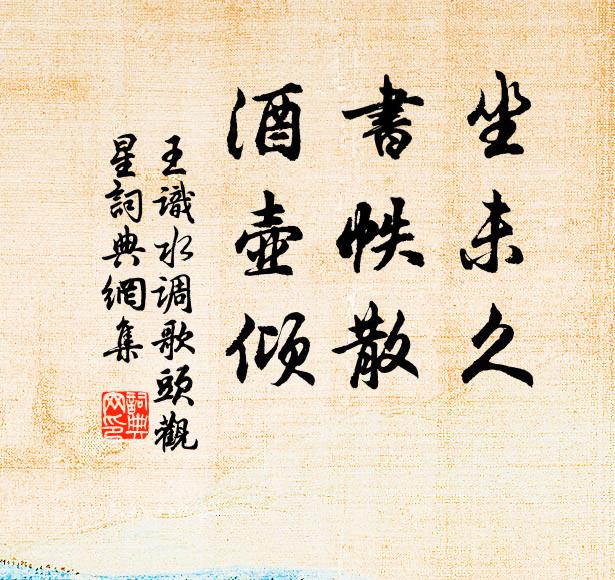 坐未久
書帙散
酒壺傾
王識水调歌頭觀
星詞典網集
詞典
网印